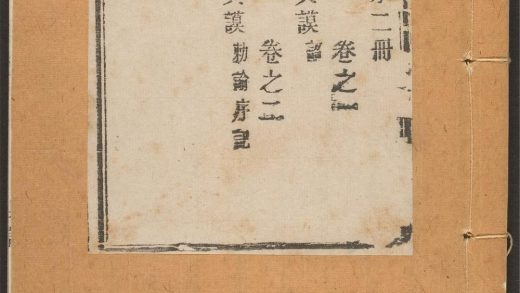 二冊
卷之一
典謨詔
卷之二
典謨勅諭序記